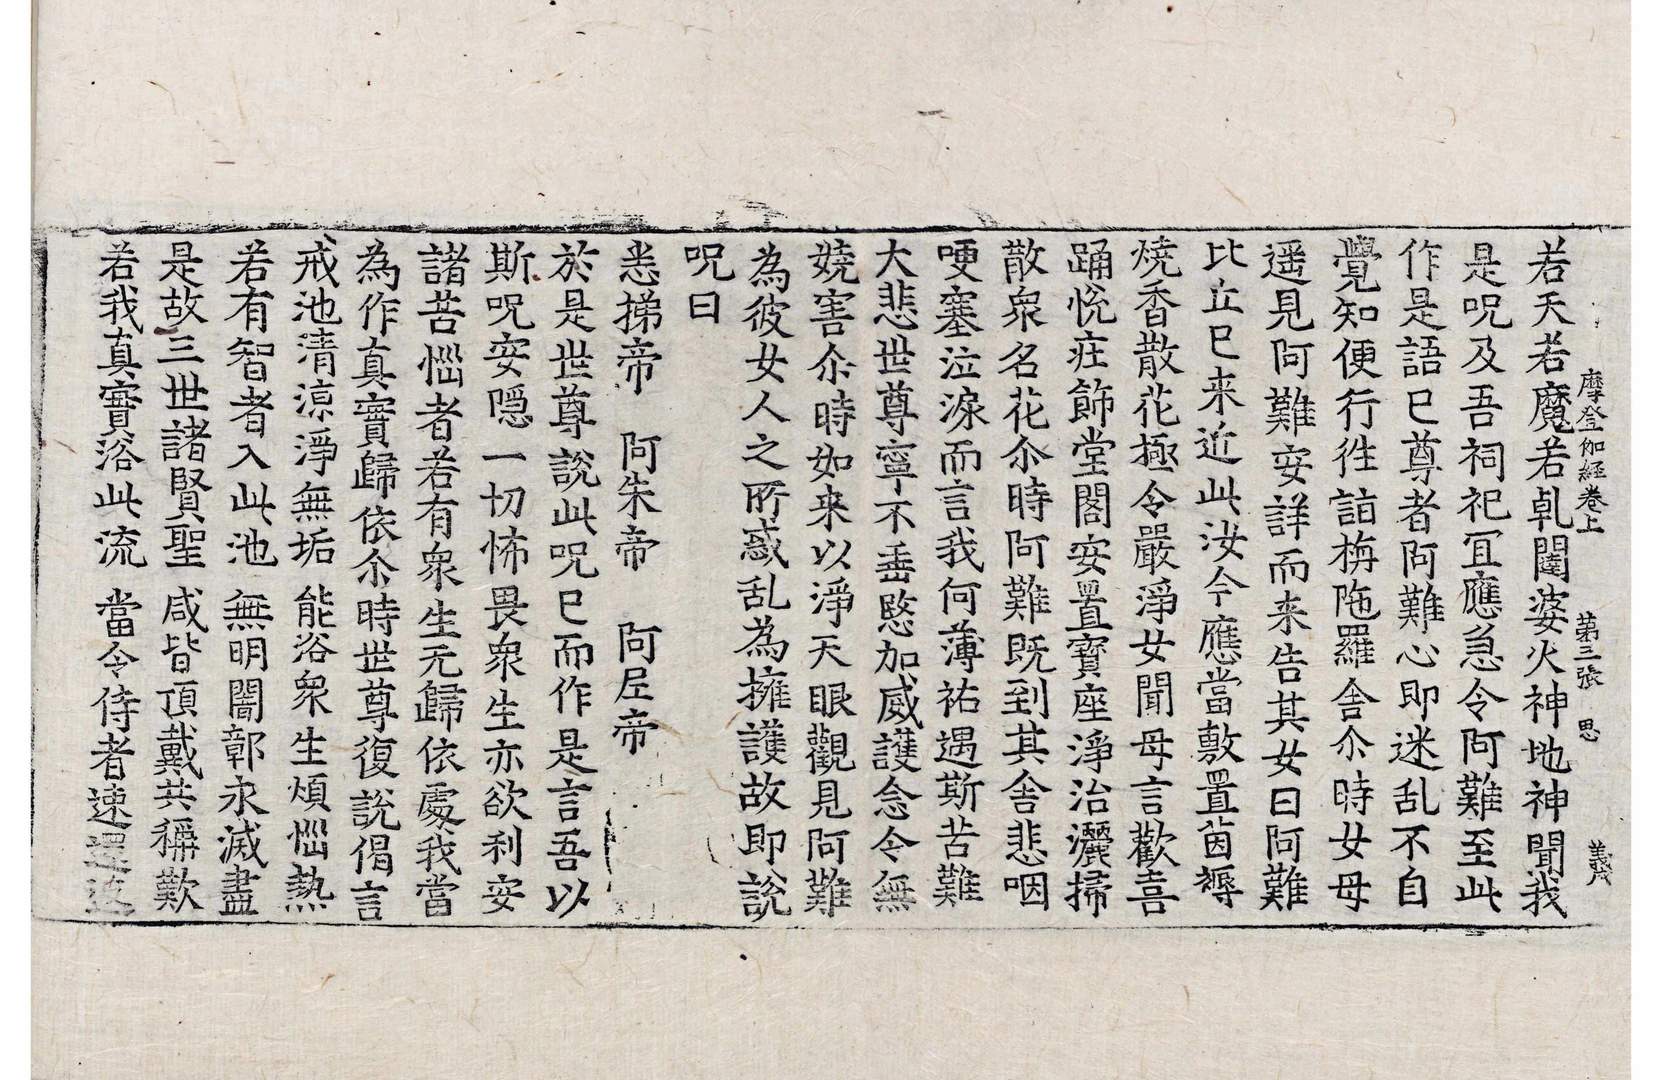 摩登伽經卷上 第三張 思 義成
若天若魔若乹闥婆火神地神聞我
是呪及吾祠祀冝應急令阿難至此
作是語已尊者阿難心即迷乱不自
覺知便行徃詣栴陁羅舍尒時女母
遥見阿難安詳而来告其女曰阿難
比丘已来近此汝今應當敷置茵褥
燒香散花極令嚴淨女聞母言歡喜
踊悅荘飾堂閣安置寶座淨治灑掃
散衆名花尒時阿難既到其舍悲咽
哽塞泣淚而言我何薄祐遇斯苦難
大悲世尊寧不垂愍加威護念令無
嬈害尒時如来以淨天眼觀見阿難
為彼女人之所惑乱為擁護故即說
呪曰
悉抵帝 阿朱帝 阿𡰱帝
於是世尊說此呪已而作是言吾以
斯呪安隠一切怖畏衆生亦欲利安
諸苦惱者若有衆生无歸依處我當
為作真實歸依尒時世尊復說偈言
戒池清涼淨無垢 能浴衆生煩惱熱
若有智者入此池 無明闇鄣永滅盡
是故三世諸賢聖 咸皆頂戴共稱歎
若我真實浴此流 當令侍者速還